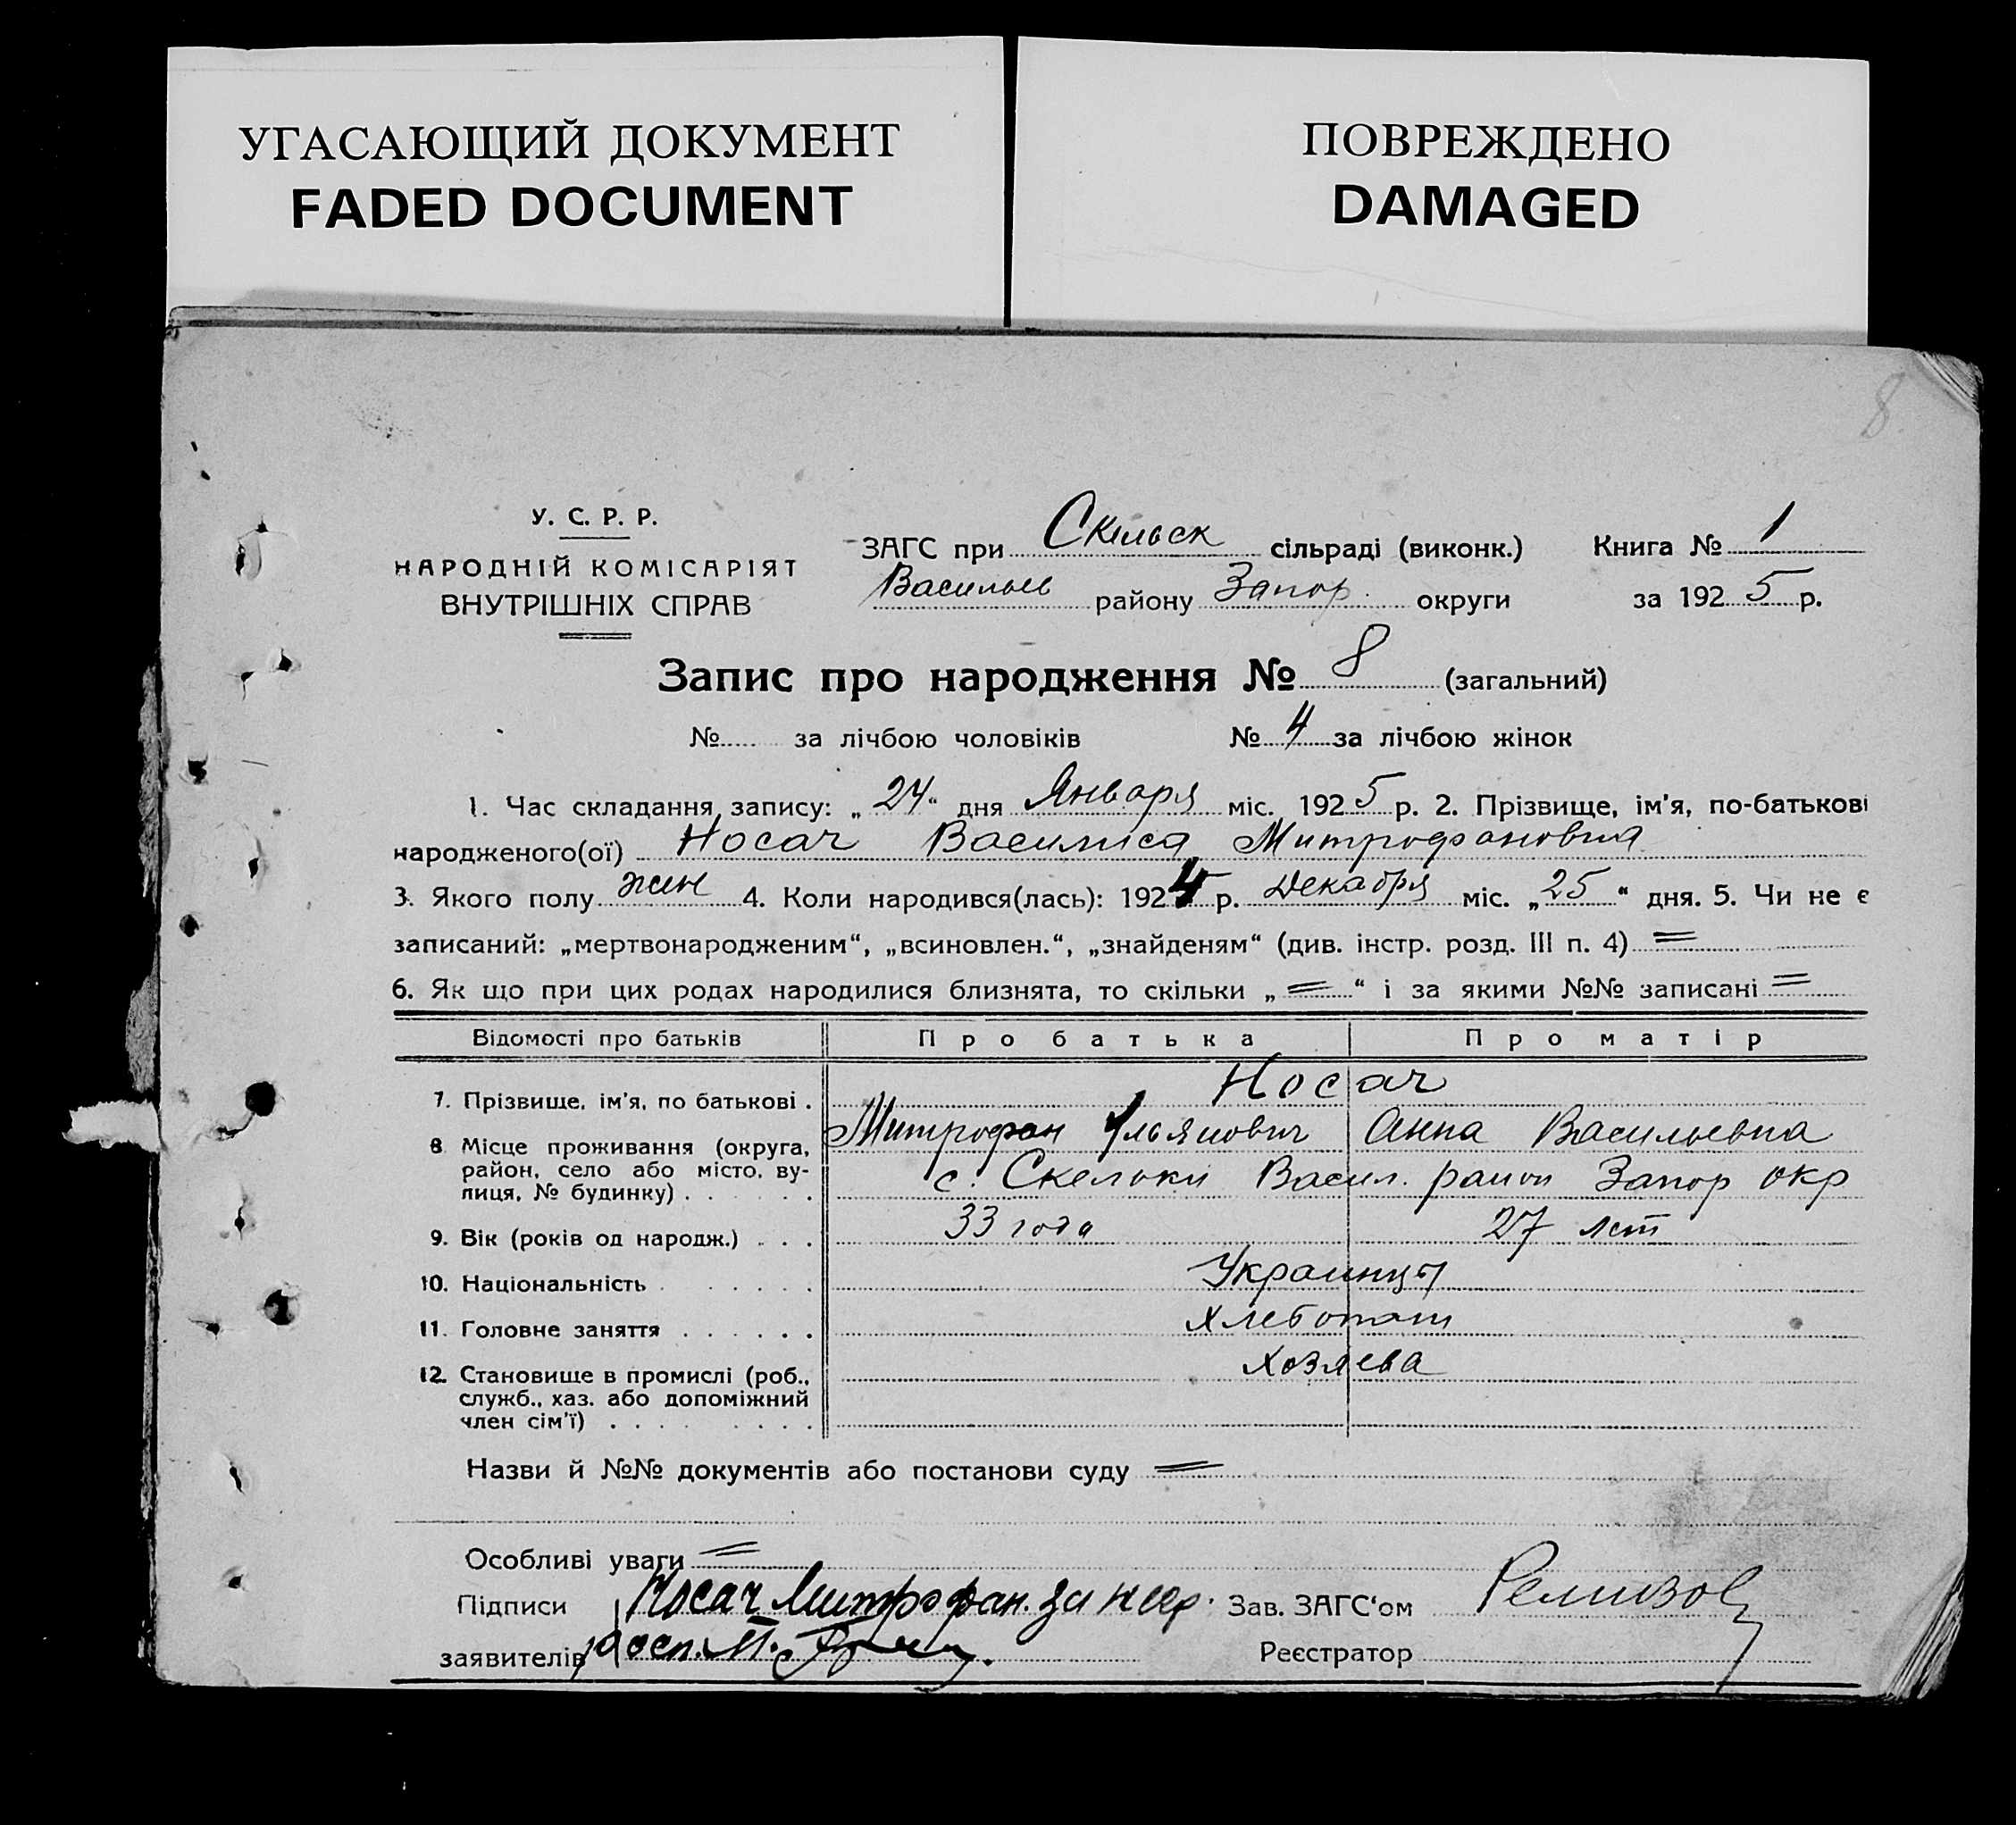 УГАСАЮЩИЙ ДОКУМЕНТ
FADED DOCUMENT
ПОВРЕЖДЕНО
DAMAGED
8
У. С. Р. Р.
НАРОДНІЙ КОМІСАРІЯТ
ВНУТРІШНІХ СПРАВ
ЗАГС при Скельск сільраді (виконк.) Книга № 1
Васильев району Запор. округи за 1925 р.
Запис про народження № 8 (загальний)
№ за лічбою чоловіків № 4 за лічбою жінок
1. Час складання запису: „24“ дня Января міс. 1925 р. 2. Прізвище, ім'я, по-батькові
народженого(ої) Носач Василиса Митрофановна
3. Якого полу жен 4. Коли народився(лась): 1924 р. Декабря міс. „25“ дня. 5. Чи не є
записаний: „мертвонародженим“, „всиновлен.“, „знайденям“ (див. інстр. розд. III п. 4) =
6. Як що при цих родах народилися близнята, то скільки „=“ і за якими №№ записані =
Відомості про батьків Про батька Про матір
7. Прізвище, ім'я, по батькові . Носач
Митрофан Ульянович Анна Васильевна
8 Місце проживання (округа, район, село або місто, ву-
лиця, № будинку) . . . . . . с. Скельки Васил. район Запор окр
9. Вік (років од народж.) . . . 33 года 27 лет
10. Національність . . . . . . Украинцы
11. Головне заняття . . . . . . Хлебопаш
12. Становище в промислі (роб., Хозяева
служб., хаз. або допоміжний
член сім'ї) . . . . . . . . .
Назви й №№ документів або постанови суду =
Особливі уваги =
Підписи Носач Митрофан. за негр. Зав. ЗАГС'ом Ремизов
заявителів росп. М. Реєстратор